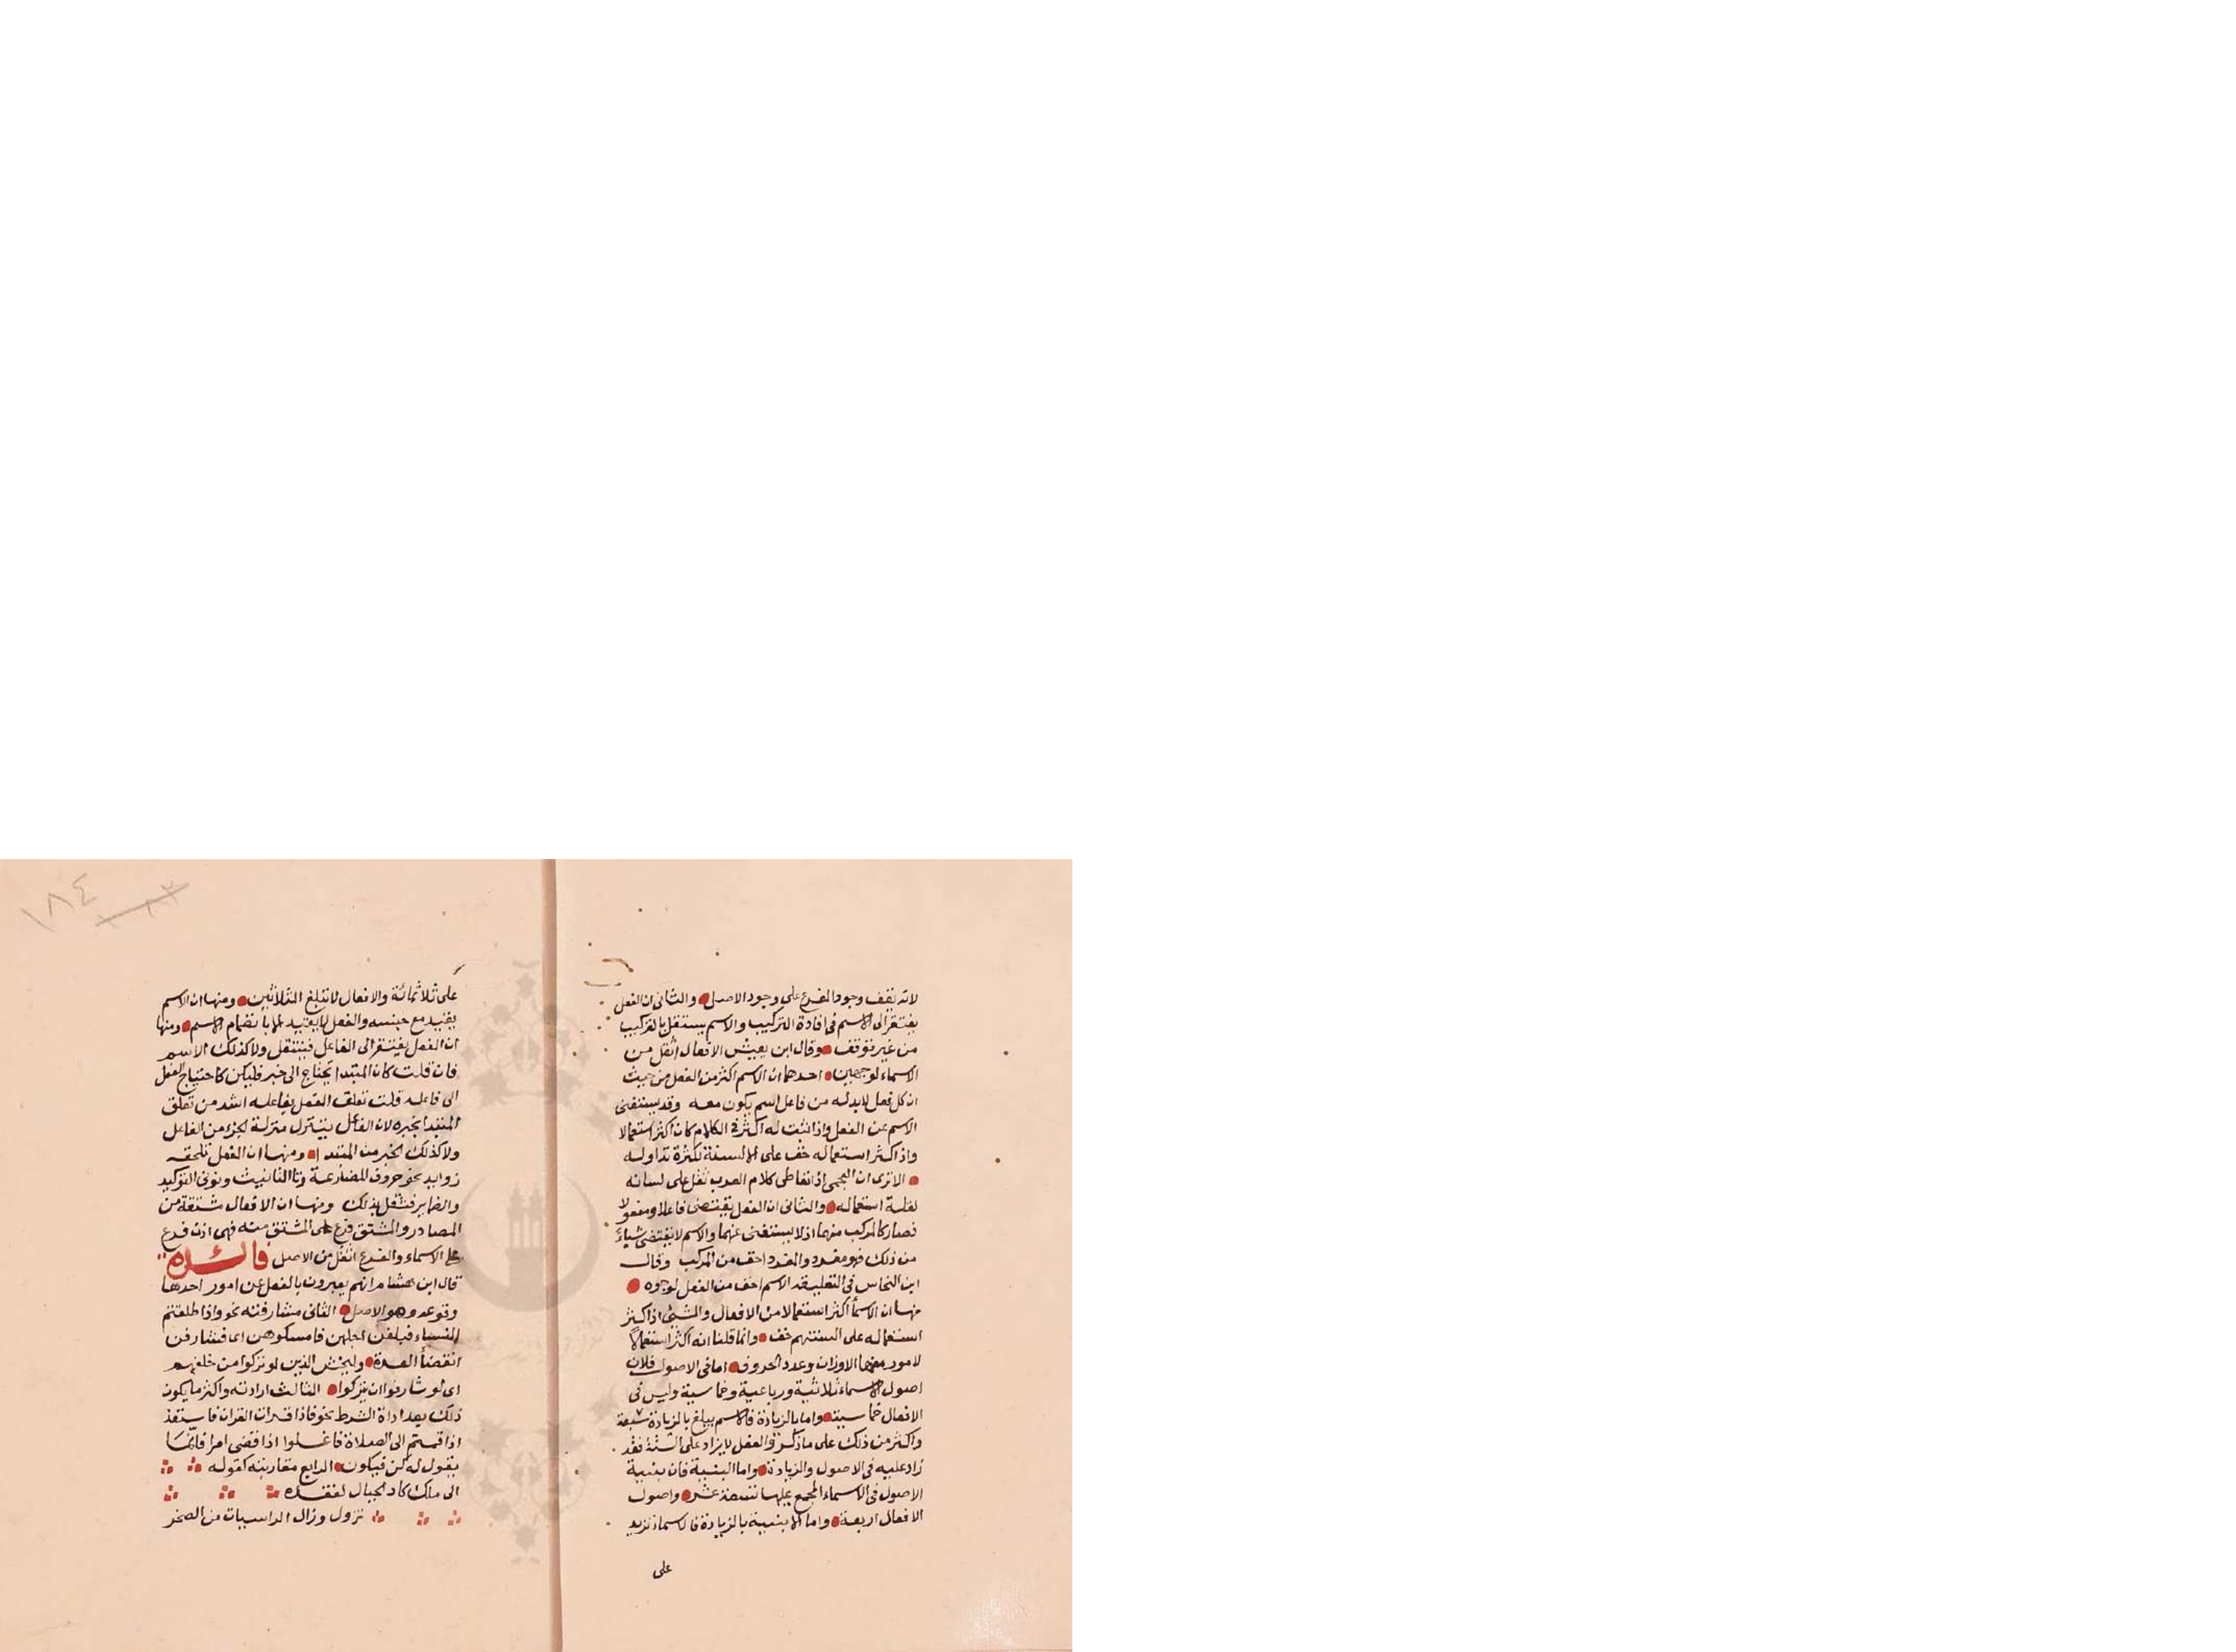 لانه يقف وجود الفرع على وجود الاصل والثانى ان الفعل
يفتقر الى الاسم فى افادة التركيب والاسم يستقل بالتركيب
من غير توقف وقال ابن يعيش الافعال اثقل من
الاسماء لوجهين احدهما ان الاسم اكثر من الفعل من حيث
ان كل فعل لابد له من فاعل اسم يكون معه وقد يستغنى
الاسم عن الفعل واذا ثبت له اكثر فى الكلام كان اكثر استعمالا
واذ اكثر استعماله خف على الالسنة لكثرة تداوله
الا ترى ان العجمى اذا تعاطى كلام العرب ثقل على لسانه
لقلة استعماله والثانى ان الفعل يقتضى فاعلا ومفعولا
فصار كالمركب منهما اذ لا يستغنى عنهما والاسم لا يقتضى شياء
من ذلك فهو مفرد والمفرد اخف من المركب وقال
ابن النحاس فى التعليقة الاسم اخف من الفعل لوجوه
منها ان الاسما اكثر استعمالا من الافعال والشئ اذا كثر
استعماله على السنتهم خف وانما قلنا انه اكثر استعمالا
لامور منها الاوزان وعدد الحروف اما فى الاصول فلان
اصول الاسماء ثلاثية ورباعية وخماسية وليس فى
الافعال خماسية واما بالزيادة فالاسم يبلغ بالزيادة سبعة
واكثر من ذلك على ما ذكر والفعل لا يزاد على الستة فقد
زاد عليه فى الاصول والزيادة واما البنية فان بنية
الاصول فى الاسماء المجمع عليها تسعة عشر واصول
الافعال اربعة واما الابنية بالزيادة فالاسماء تزيد
على
١٨٤
على ثلاثمائة والافعال لا تبلغ الثلاثين ومنها ان الاسم
يفيد مع جنسه والفعل لا يفيد الا بانضمام الاسم ومنها
ان الفعل يفتقر الى الفاعل فيثقل ولا كذلك الاسم
فان قلت كان المبتدا يحتاج الى خبر فليكن كاحتياج الفعل
الى فاعله قلت تعلق الفعل بفاعله اشد من تعلق
المبتدا بخبره لان الفاعل يتنزل منزلة الجزء من الفاعل
ولا كذلك الخبر من المبتدا ومنها ان الفعل تلحقه
زوايد نحو حروف المضارعة وتا التانيث ونونى التوكيد
والضماير فثقل بذلك ومنها ان الافعال مشتقة من
المصادر والمشتق فرع على المشتق منه فهى اذن فرع
على الاسماء والفرع اثقل من الاصل فائده
قال ابن هشام انهم يعبرون بالفعل عن امور احدها
وقوعه وهو الاصل الثانى مشارفته نحو واذا طلقتم
النساء فبلغن اجلهن فامسكوهن اى فشارفن
انقضا العدة وليخش الذين لو تركوا من خلفهم
اى لو شارفوا ان يتركوا الثالث ارادته واكثر ما يكون
ذلك بعد اداة الشرط نحو فاذا قرات القران فاستعذ
اذا قمتم الى الصلاة فاغسلوا اذا قضى امرا فانما
يقول له كن فيكون الرابع مقاربته كقوله
الى ملك كاد الجبال لفقده
تزول وزال الراسيات من الصخر